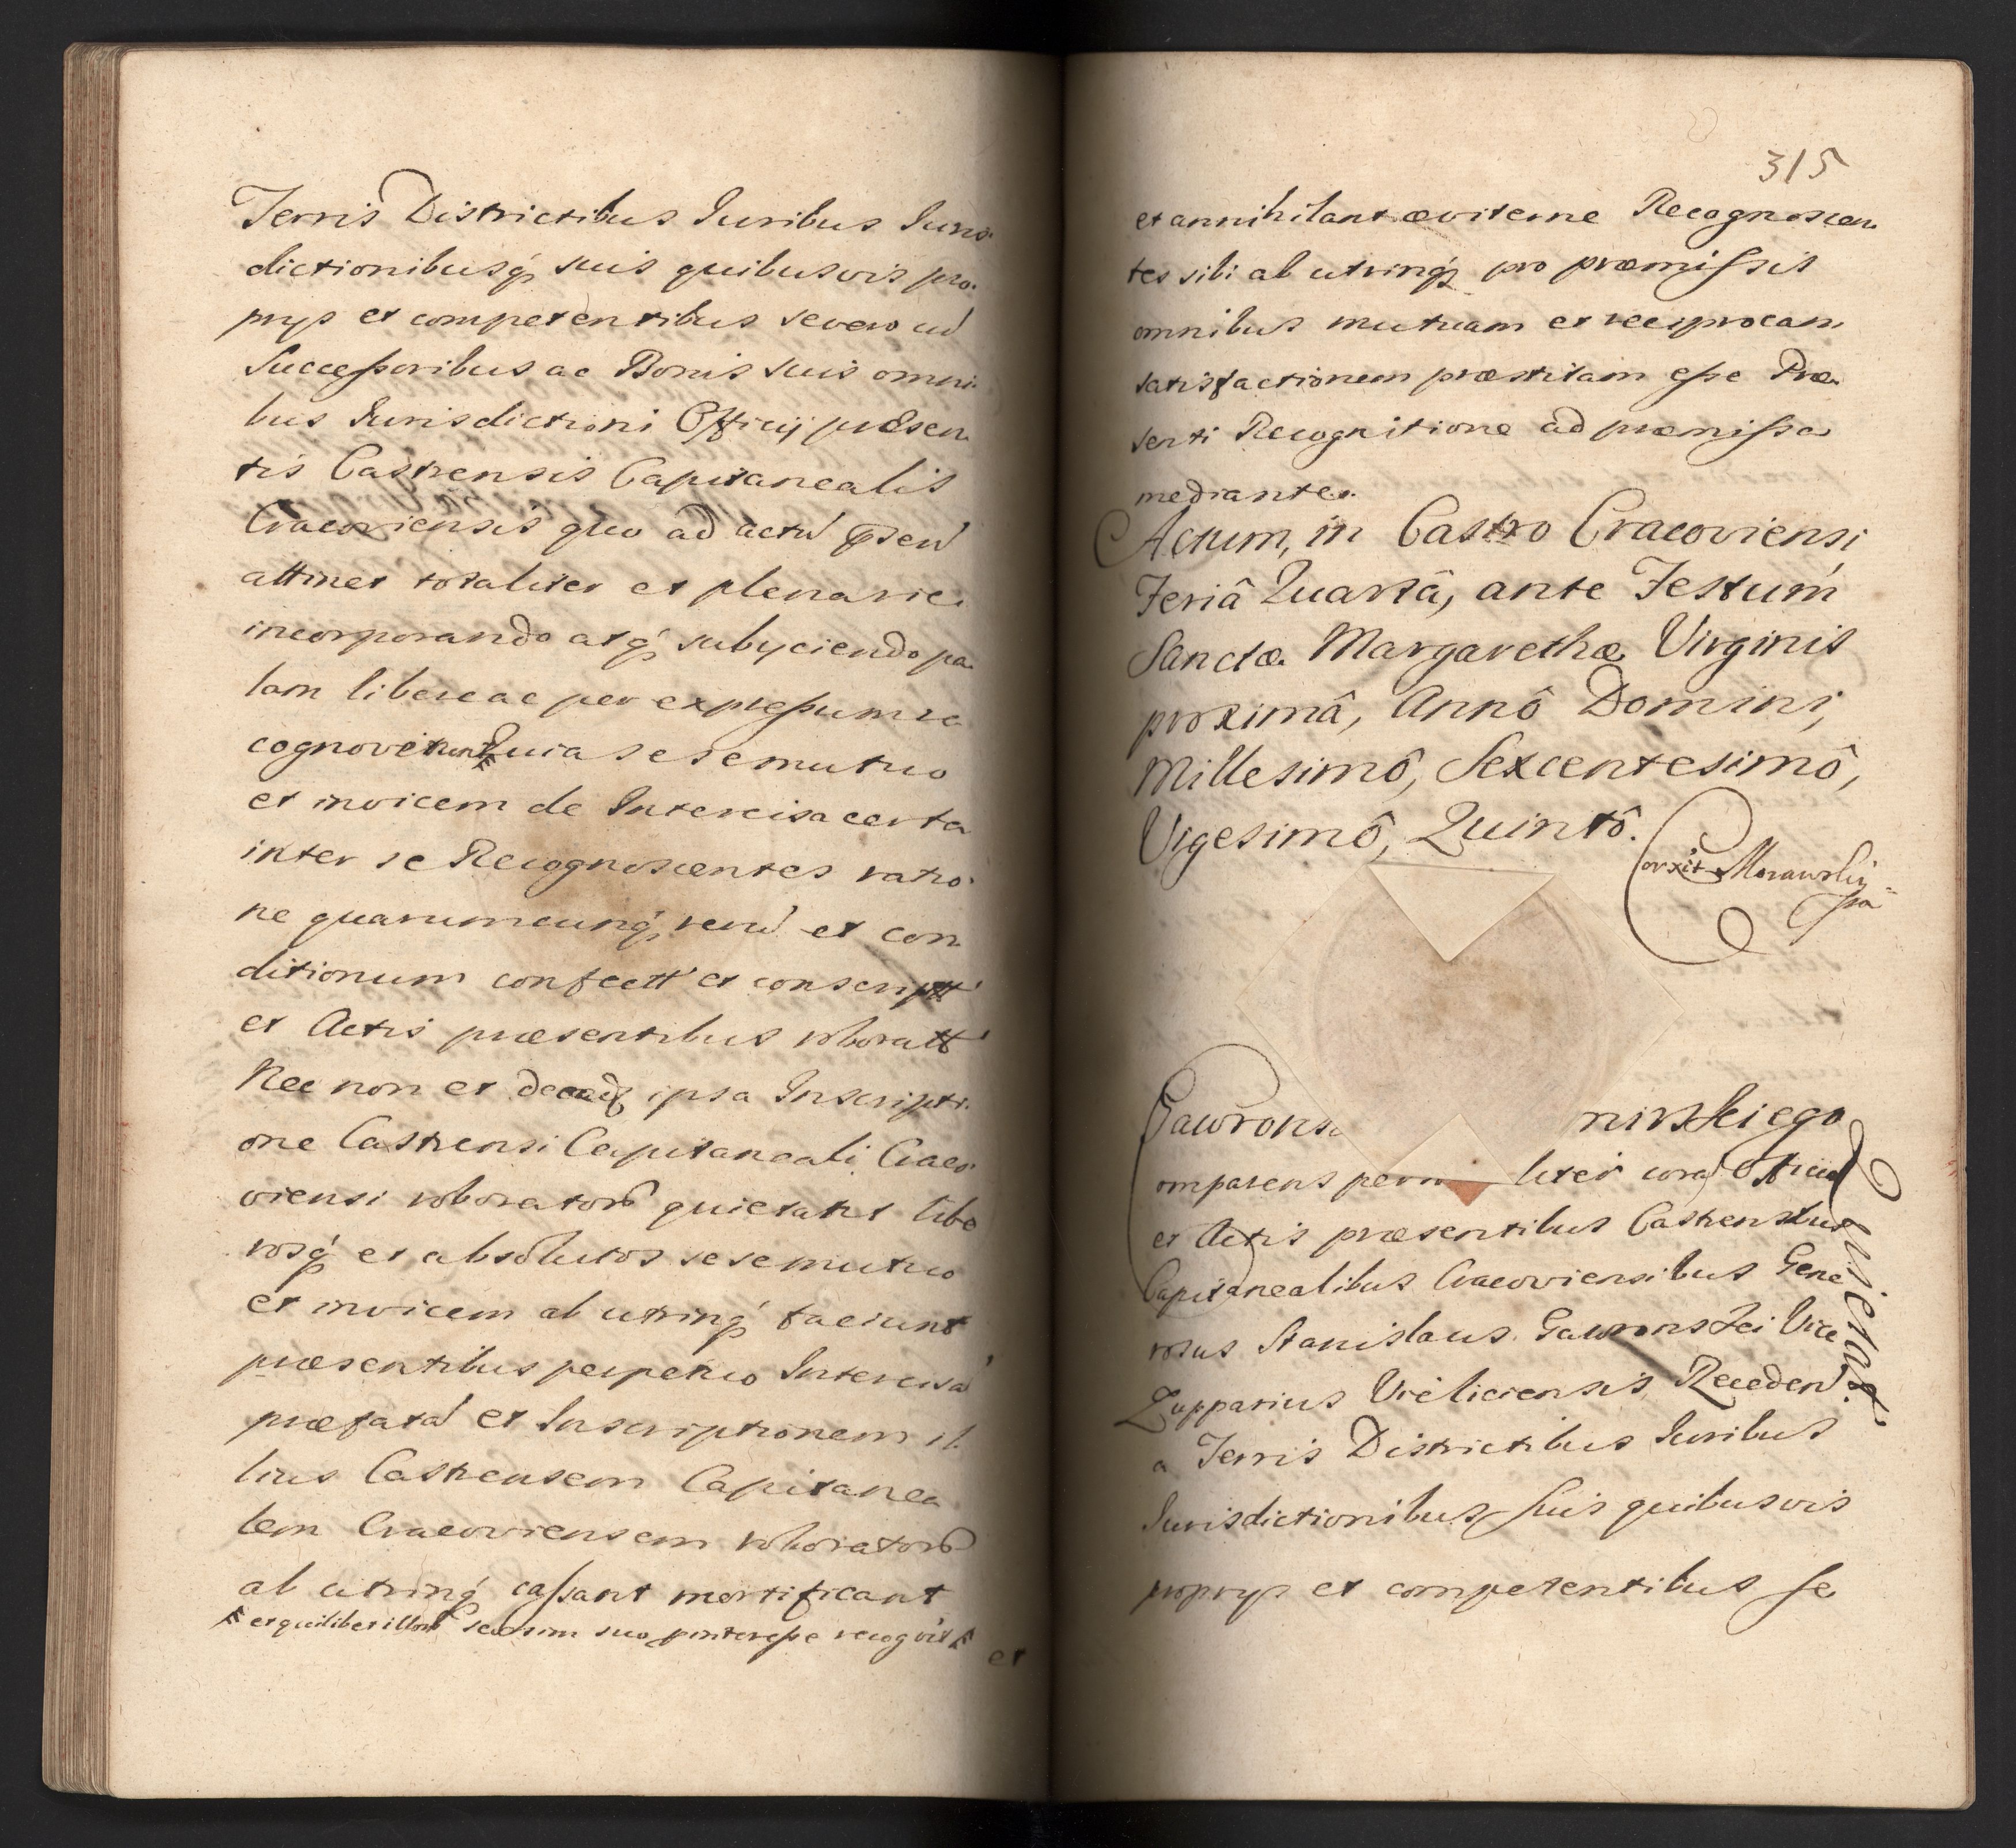 Terris Districtibus Iuribus Juris-
dictionibusq́ suis quibusvis pro-
prys et competentibus severo cū
Successoribus ac Bonis suis omni-
bus Jurisdictioni Officij præsen
tis Castrensis Capitanealis
Cracoviensis quo ad actū
attinet totaliter et plenarie
incorporando atq́ subyciendo pa-
lam libere ac per expressum re
cognoverunt Quia sese mutuo
et invicem de Intercisa certa
inter se Recognoscentes ratio-
ne quarumcunq́ rerū et con
ditionum confectt et conscriptt
et Actis præsentibus roboratt
Nec non et de ipsa Inscripti-
one Castrensi Capitaneali Craco-
viensi roborator quietant libe
rosq́ et absolutos sese mutuo
et invicem ab utrinq́ faciunt
præsentibus perpetuo Intercisā
præfatā et Inscriptionem il-
lius Castrensem Capitanea
lem Cracoviensem roborator
ab utrinq́ cassant mortificant
et quilibet illor seorsim suo pinteresse recogvit
et
315
et annihilant æviterne Recognoscen-
tes sibi ab utrinq́ pro præmissis
omnibus mutuam et reciprocam
satisfactionem præstitam esse Præ-
senti Recognitione ad præmissa
mediante.
Actum, in Castro Cracoviensi
Feriâ Quartâ, ante Festum
Sanctæ Margarethæ Virginis
proximâ, Annô Domini,
Millesimô, Sexcentesimô,
Vigesimô, Quintô.
Corxit Morawsky
Gawrons nirskiego
Quietat.
Comparens liter corā Officio
et Actis præsentibus Castrensibus
Capitanealibus Cracoviensibus Gene
rosus Stanislaus Gawronskei Vice
Zupparius Vieliciensis, Recedenˉ
a Terris Districtibus Iuribus
Jurisdictionibusq́ suis quibusvis
proprys et competentibus se